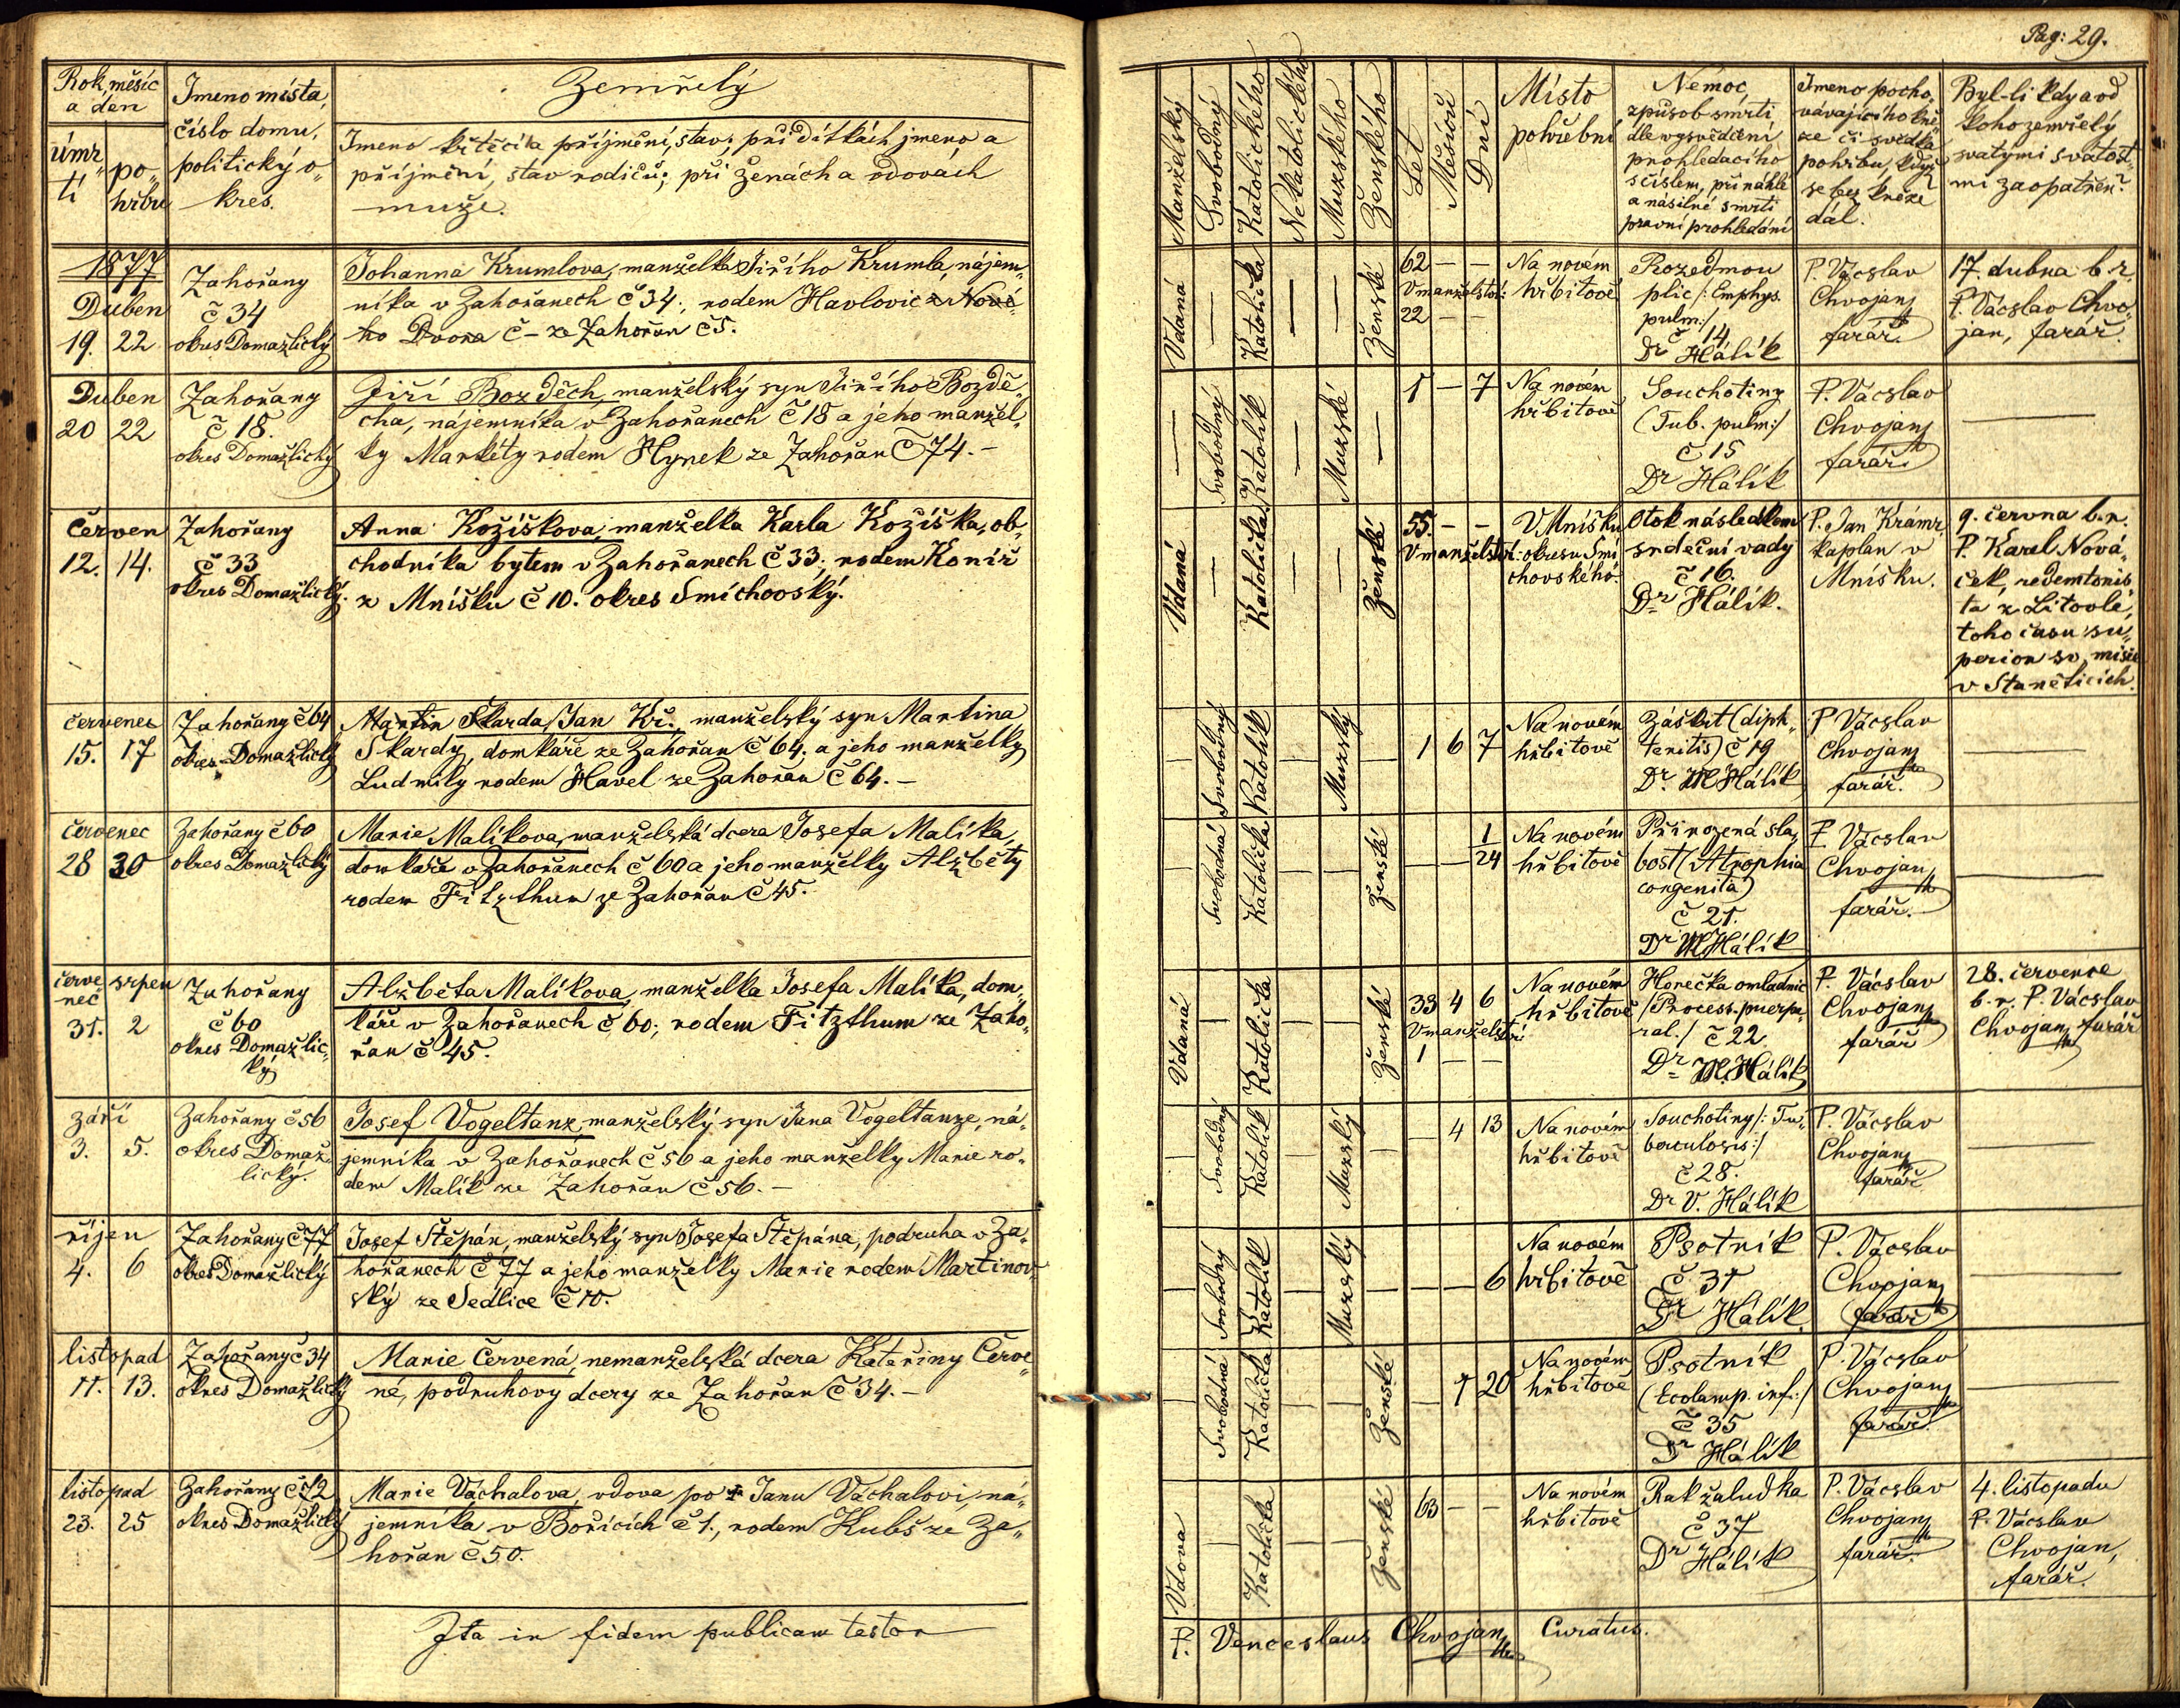 Pag: 29.
Rok, měsíc
a den
úmr„
tí
po„
hřbu
Jmeno místa,
číslo domu,
politický o„
kres.
Zemřelý
Jmeno křtěcí a příjmění, stav; při dítkách jmeno a
příjmění, stav rodičů; při ženách a vdovách
muže.
Manželský
Svobodný
Katolického
Nekatolického
Mužského
Ženského
Let
Měsíců
Dní
Místo
pohřební
Nemoc,
způsob smrti
dle vysvědčení
prohledacího
s číslem, při náhlé
a násilné smrti
pravní prohledání
Jmeno pocho„
vávajícího kně„
ze či svědka
pohřbu, když
se bez kněze
dál.
Byl-li kdy a od
koho zemřelý
svatými svátost„
mi zaopatřen?
1877
Duben
19. 22
Zahořany
č 34
okres Domažlický
Johanna Krumlova, manželka Jiřího Krumla, nájem„
níka v Zahořanech č 34; rodem Havlovic z Nové„
ho Dvora č – ze Zahořan č 5.
Vdaná — Katolička — — Ženské
62 — —
V manželství:
22 — —
Na novém
hřbitově
Rozedmou
plic /: Emphys.
pulm:/
č 14
Dr Hálík
P. Vácslav
Chvojan
farář
17. dubna b. r.
P. Vácslav Chvo„
jan, farář.
Duben
20 22
Zahořany
č 18.
okres Domažlický
Jiří Bozděch, manželský syn Jiřího Bozdě„
cha, nájemníka v Zahořanech č 18 a jeho manžel„
ky Markéty rodem Hynek ze Zahořan č 74. –
— Svobodný Katolík — Mužské —
1 — 7
Na novém
hřbitově
Souchotiny
(Tub. pulm:/
č 15
Dr Hálík
P. Vácslav
Chvojan
farář
—
červen
12. 14.
Zahořany
č 33
okres Domažlický.
Anna Kožíškova, manželka Karla Kožíška, ob„
chodníka bytem v Zahořanech č 33; rodem Koníř
z Mníšku č 10. okres Smíchovský.
Vdaná — Katolička — — Ženské
55. — —
V manželství:
V Mníšku
okresu Smí
chovského
Otok následkem
srdeční vady
č 16.
Dr Hálík.
P. Jan Krámr,
kaplan v
Mníšku.
9. června b. r.
P. Karel Nová„
ček, redemtoris
ta z Litovle,
toho času su„
perior sv. misie
v Staněticích.
červenec
15. 17
Zahořany č 64
okres Domažlický
Martin Škarda, Jan Kř., manželský syn Martina
Škardy, domkáře ze Zahořan č 64. a jeho manželky
Ludmily rodem Havel ze Zahořan č 64. –
— Svobodný Katolík — Mužský —
1 6 7
Na novém
hřbitově
Záškrt (diph„
teritis) č 19
Dr M Hálík
P Vácslav
Chvojan
farář.
—
červenec
28 30
Zahořany č 60
okres Domažlický
Marie Malíkova, manželská dcera Josefa Malíka,
domkáře v Zahořanech č 60 a jeho manželky Alžběty
rodem Fitzthum ze Zahořan č 45.
— Svobodná Katolička — — Ženské
— — 1/24
Na novém
hřbitově
Přirozená sla„
bost (Atrophia
congenita)
č 21.
Dr M Hálík
P. Vácslav
Chvojan
farář.
—
červe„
nec
srpen
31. 2
Zahořany
č 60
okres Domažlic„
ký
Alžběta Malíkova, manželka Josefa Malíka, dom„
káře v Zahořanech č 60; rodem Fitzthum ze Zaho„
řan č 45.
Vdaná — Katolička — — Ženské
33 4 6
V manželství
1 — —
Na novém
hřbitově
Horečka omladnic
/Process. puerpe„
ral./ č 22
Dr M. Hálík
P. Vácslav
Chvojan
farář
28. července
b. r. P. Vácslav
Chvojan farář
září
3. 5.
Zahořany č 56
okres Domaž„
lický.
Josef Vogeltanz, manželský syn Jana Vogeltanze, ná„
jemníka v Zahořanech č 56 a jeho manželky Marie ro„
dem Malík ze Zahořan č 56. –
— Svobodný Katolík — Mužský —
— 4 13
Na novém
hřbitově
Souchotiny /: Tu„
berculosis:/
č 28.
Dr V. Hálík
P. Vácslav
Chvojan
farář
—
říjen
4. 6
Zahořany č 77
okres Domažlický
Josef Štěpán, manželský syn Josefa Štěpána, podruha v Za„
hořanech č 77 a jeho manželky Marie rodem Martinov„
ský ze Sedlice č 10.
— Svobodný Katolík — Mužský —
— — 6
Na novém
hřbitově
Psotník
č 31
Dr Hálík.
P. Vácslav
Chvojan
farář
—
listopad
11. 13.
Zahořany č 34
okres Domažlický
Marie Červená, nemanželská dcera Kateřiny Červe„
né, podruhovy dcery ze Zahořan č 34. –
— Svobodná Katolička — — Ženské
— 7 20
Na novém
hřbitově
Psotník
(Ecolamp. inf:/
č 35
Dr Hálík
P. Vácslav
Chvojan
farář.
—
listopad
23. 25
Zahořany č 72
okres Domažlický
Marie Váchalova, vdova po † Janu Váchalovi, ná„
jemníka v Bořicích č 1., rodem Kubš ze Za„
hořan č 50.
Vdova — Katolička — — Ženské
63 — —
Na novém
hřbitově
Rak žaludka
č 37
Dr Hálík
P. Vácslav
Chvojan
farář.
4. listopadu
P. Vácslav
Chvojan,
farář.
Ita in fidem publicam testor
P. Venceslaus Chvojan Curatus.